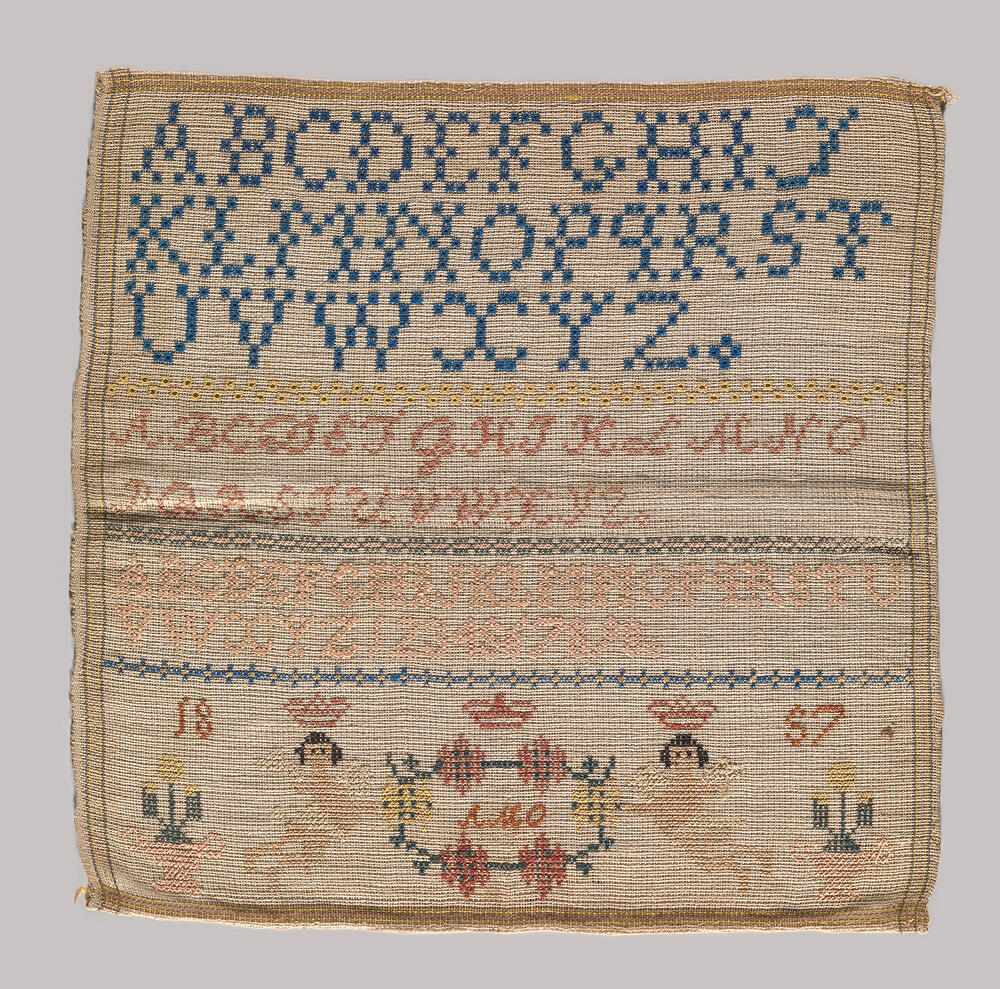 ABCDEFGHIJ
KLMNOPQRST
UVWXYZ.
ABCDEFGHIKLMNO
PQRSTUVWXYZ.
ABCDEFGHIJKLMNOPQRSTU
VWXYZ1234
18 57
AMO